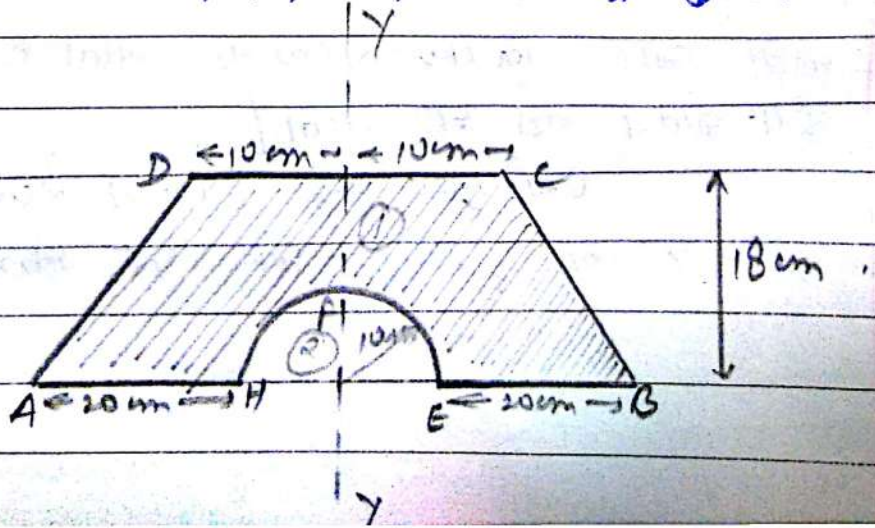 Y
D ←10cm→ ←10cm→ C
①
18cm
F
② 10cm
A ←20cm→ H E ←20cm→ B
Y